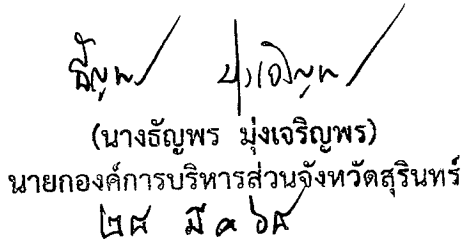 ธัญพร มุ่งเจริญพร
(นางธัญพร มุ่งเจริญพร)
นายกองค์การบริหารส่วนจังหวัดสุรินทร์
มี ค